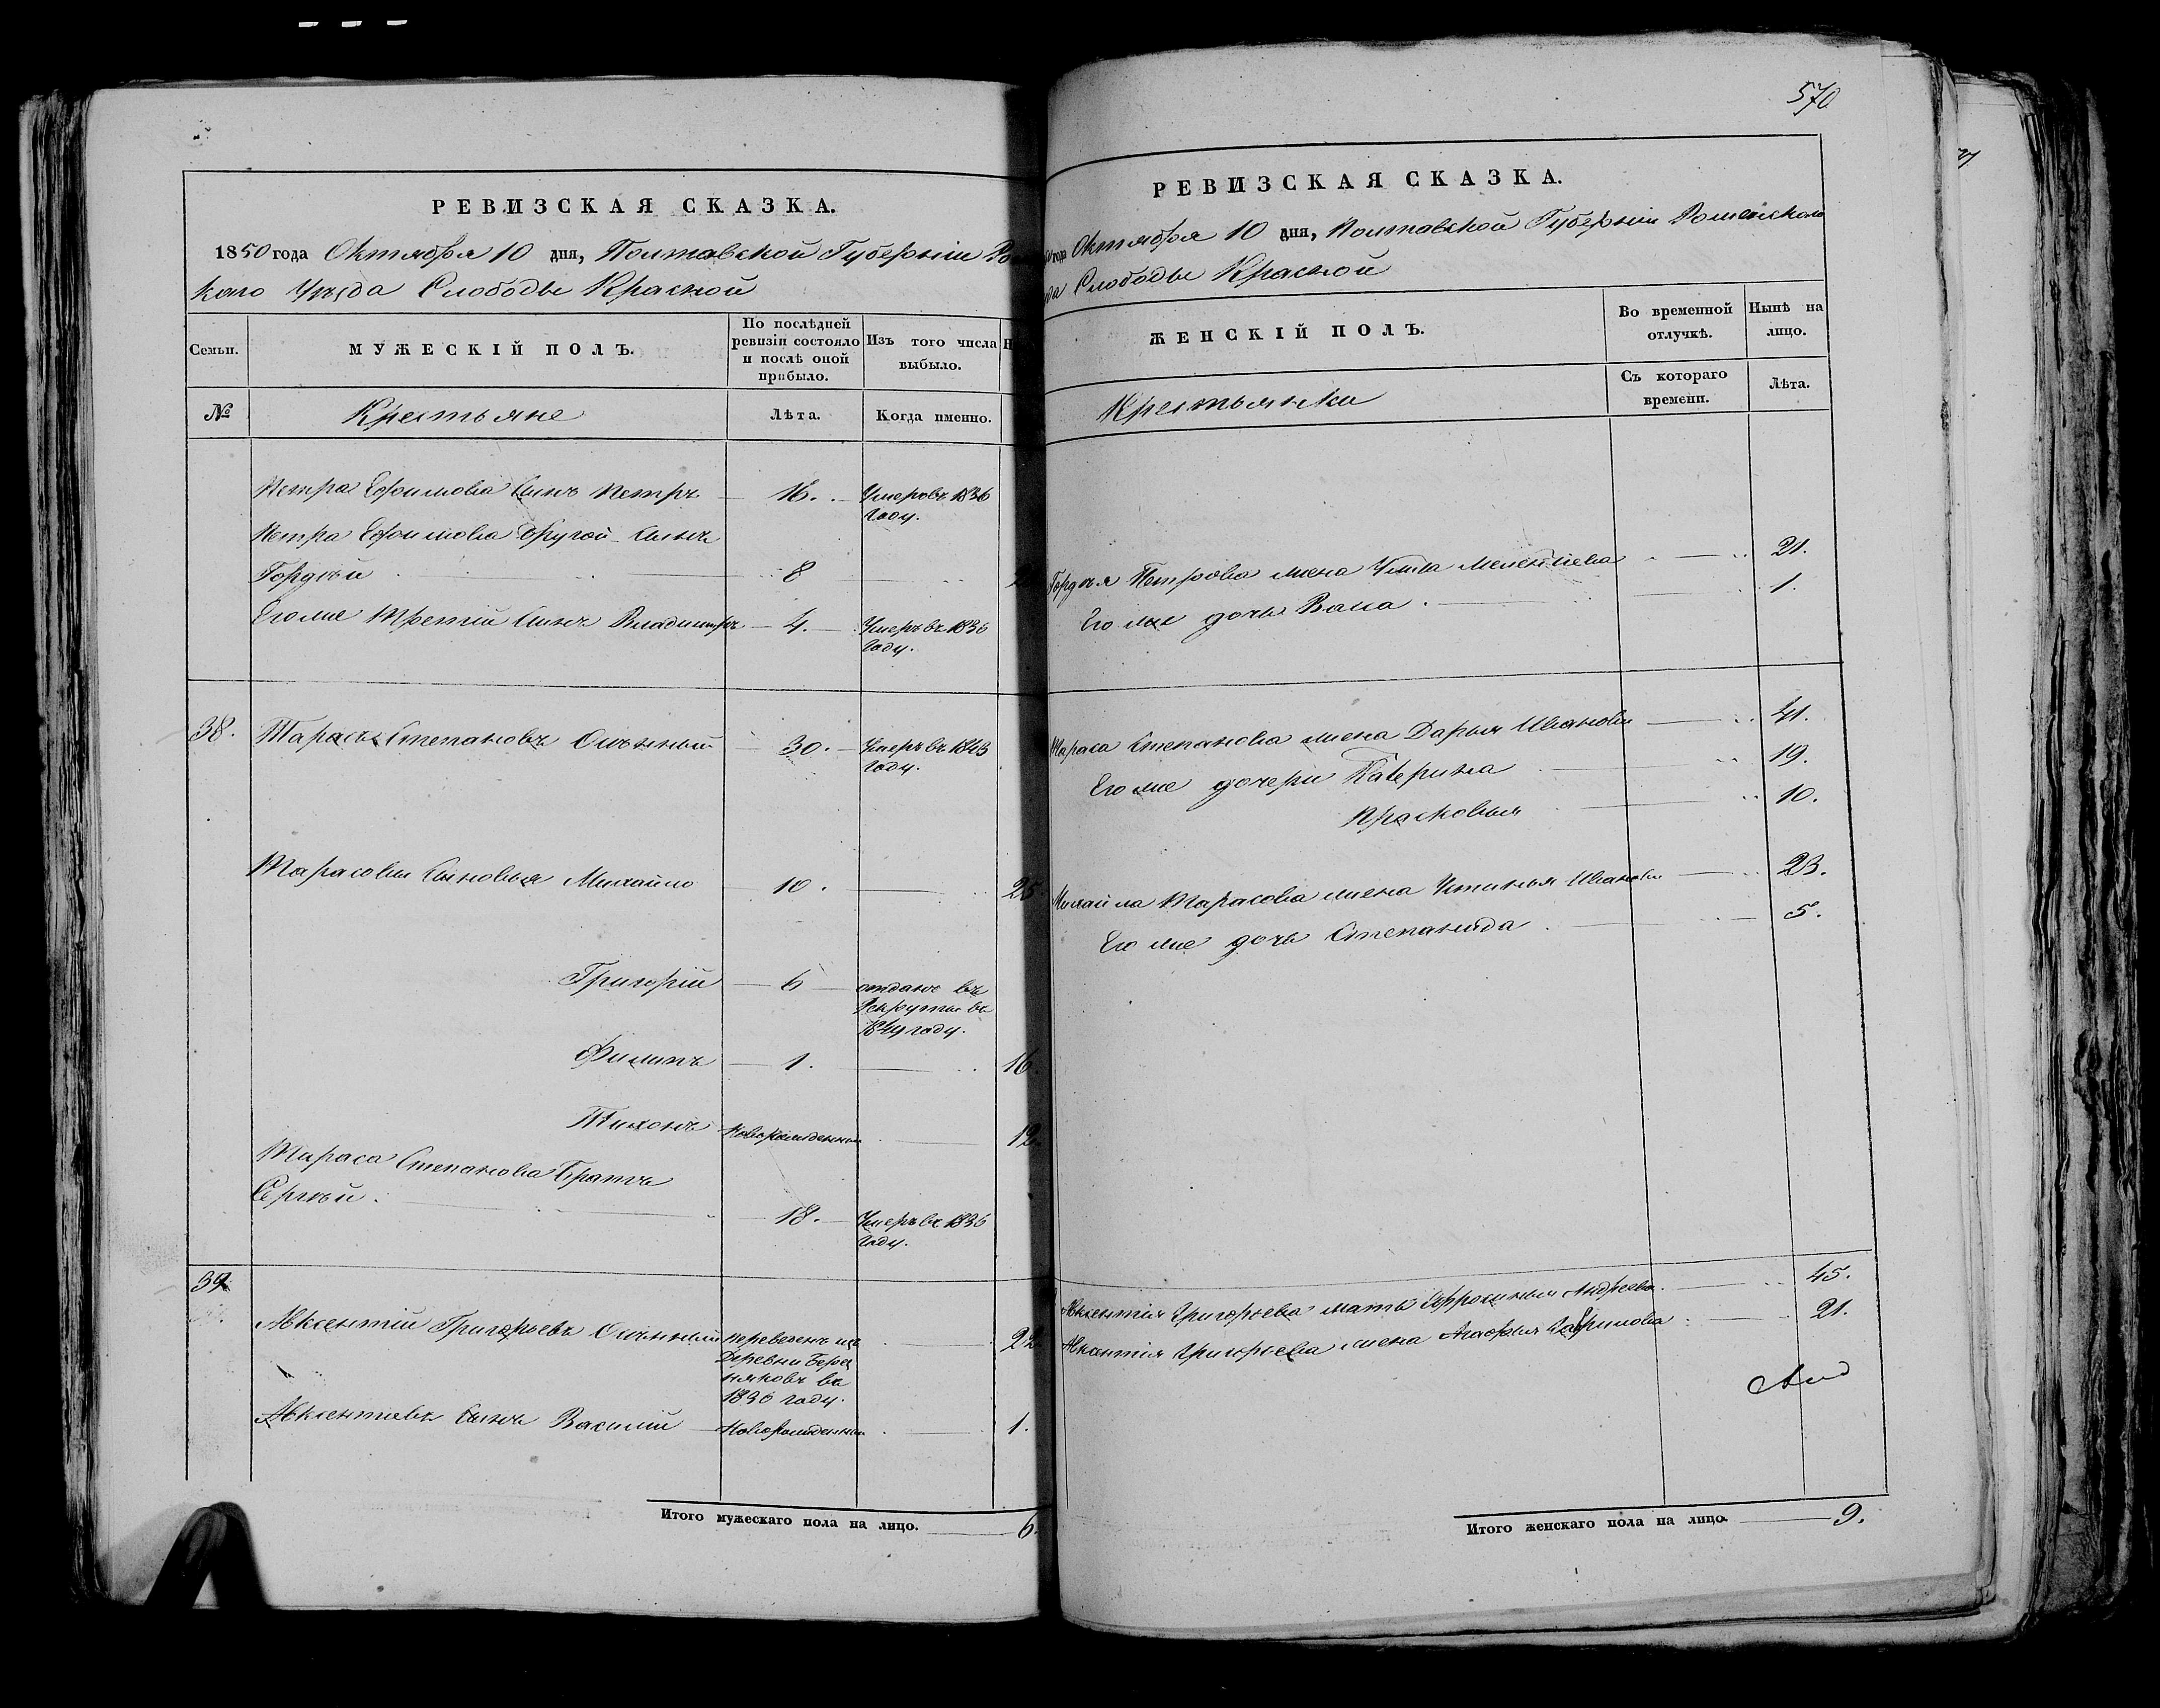 РЕВИЗСКАЯ СКАЗКА.
1850 года Октября 10 дня, Полтавской Губерніи
каго Уѣзда Слободы Красной
Семьи.
МУЖЕСКІЙ ПОЛЪ.
По послѣдней ревизіи состояло и послѣ оной прибыло.
Изъ того числа выбыло.
№
Крестьяне
Лѣта.
Когда именно.
Петра Ефимова Сынъ Петръ 16. Умеръ въ 1836 году.
Петра Ефимова другой Сынъ
Гордѣй 8
Его же третій Сынъ Владимиръ 4. Умеръ въ 1836 году.
38. Тарасъ Степановъ 30. Умеръ въ 1843 году.
Тарасовы Сыновья Михайло 10. 25
Григорій 6 отданъ въ
Рекруты въ
году.
Филипъ 1. 16
Тихонъ Новорожденный 12.
Тараса Степанова Братъ
Сергѣй 18. Умеръ въ 1836
году.
39
Авксентій Григорьевъ переведенъ изъ 22
Деревни
въ
1836 году.
Авксентіевъ Сынъ Василій Новорожденный 1.
Итого мужескаго пола на лицо. 6.
570
РЕВИЗСКАЯ СКАЗКА.
года Октября 10 дня, Полтавской Губерніи Роменскаго
да Слободы Красной
ЖЕНСКІЙ ПОЛЪ.
Во временной отлучкѣ.
Нынѣ на лицо.
Крестьянки
Съ котораго времени.
Лѣта.
Гордѣя Петрова жена 21.
Его же дочь Васа 1.
Тараса Степанова жена Дарья Иванова 41.
Его же дочери Катерина 19.
Прасковья 10.
Михайла Тарасова жена Устинья Иванова 23.
Его же дочь Степанида 5.
Авксентія Григорьева мать Ефросинья Андреева 45.
Авксентія Григорьева жена Агафья 21.
Итого женскаго пола на лицо. 9.